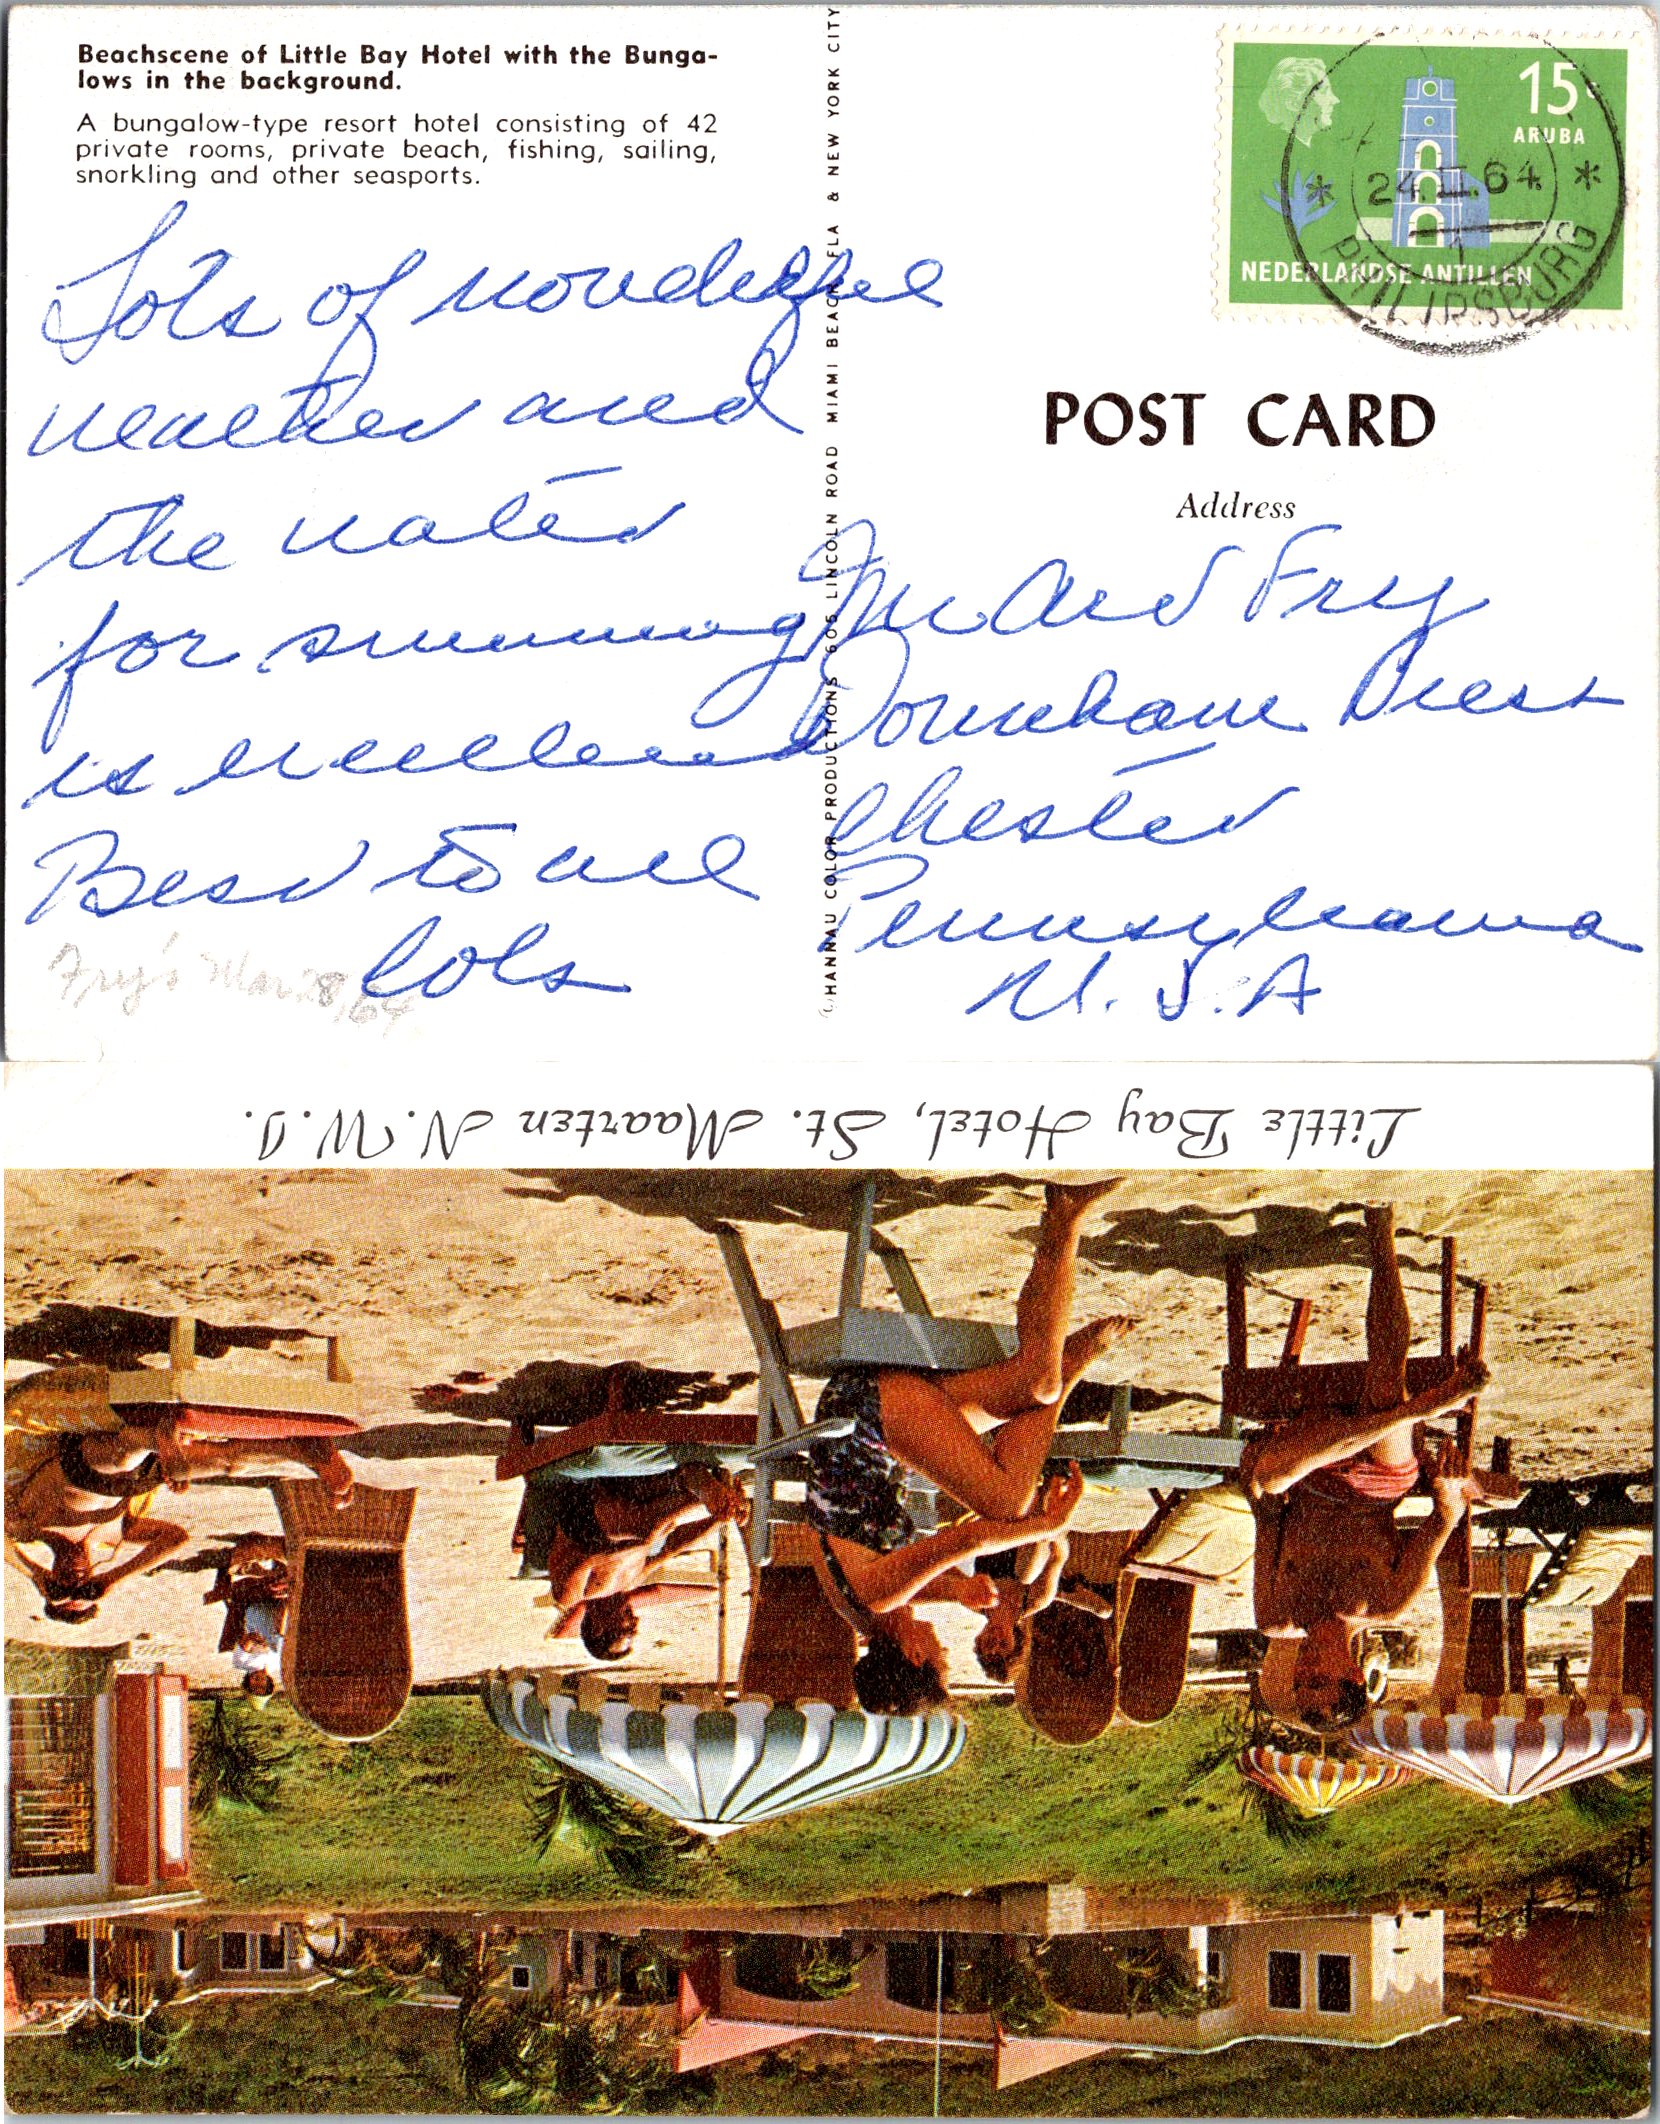 Beachscene of Little Bay Hotel with the Bunga-
lows in the background.
A bungalow-type resort hotel consisting of 42
private rooms, private beach, fishing, sailing,
snorkling and other seasports.
Lots of wonderful
weather and
the water
for swimming
is excellent
Best to all
Lols
Fry's Mar 28/64
© HANNAU COLOR PRODUCTIONS 605 LINCOLN ROAD MIAMI BEACH, FLA & NEW YORK CITY
15 c
ARUBA
NEDERLANDSE ANTILLEN
* 24.II.64 *
1
PHILIPSBURG
POST CARD
Address
Fry
Chester
Pennsylvania
U.S.A
Little Bay Hotel, St. Maarten N.W.I.